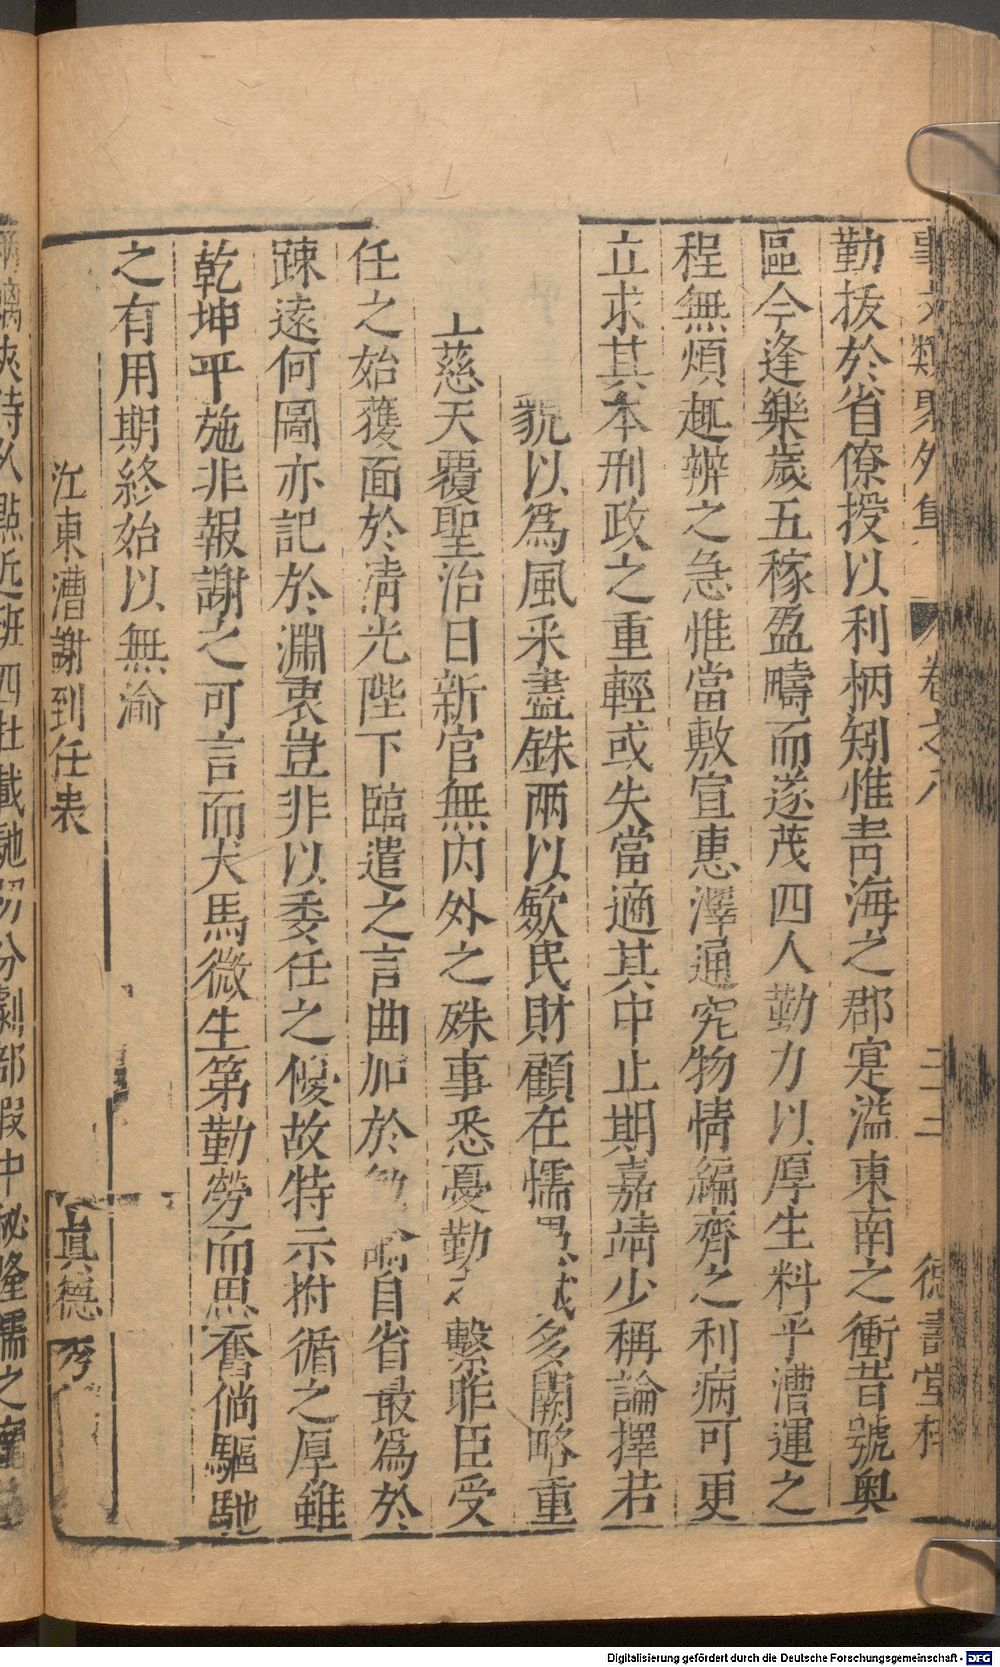 事文類聚外集 卷之八 德壽堂梓
勤拔於省僚授以利柄矧惟靑海之郡寔溢東南之衝昔號奥
區今逢樂歲五稼盈疇而遂茂四人勤力以厚生料乎漕運之
程無煩趣辨之急惟當敷宣惠澤通究物情編齊之利病可更
立求其本刑政之重輕或失當適其中止期嘉靖少稱論擇若
貌以爲風采盡銖兩以歛民財顧在懦 多闕略重
慈天覆聖治日新官無內外之殊事悉憂勤 繫眷臣受
任之始獲面於淸光陛下臨遣之言曲加於 自省最爲於
踈遠何圖亦記於淵衷豈非以委任之優故特示拊循之厚雖
乾坤平施非報謝之可言而犬馬微生第勤勞而思奮倘驅馳
之有用期終始以無渝
江東漕謝到任表 真德秀
點近班四杜載馳 分劇部假中秘隆儒之
Digitalisierung gefördert durch die Deutsche Forschungsgemeinschaft - DFG